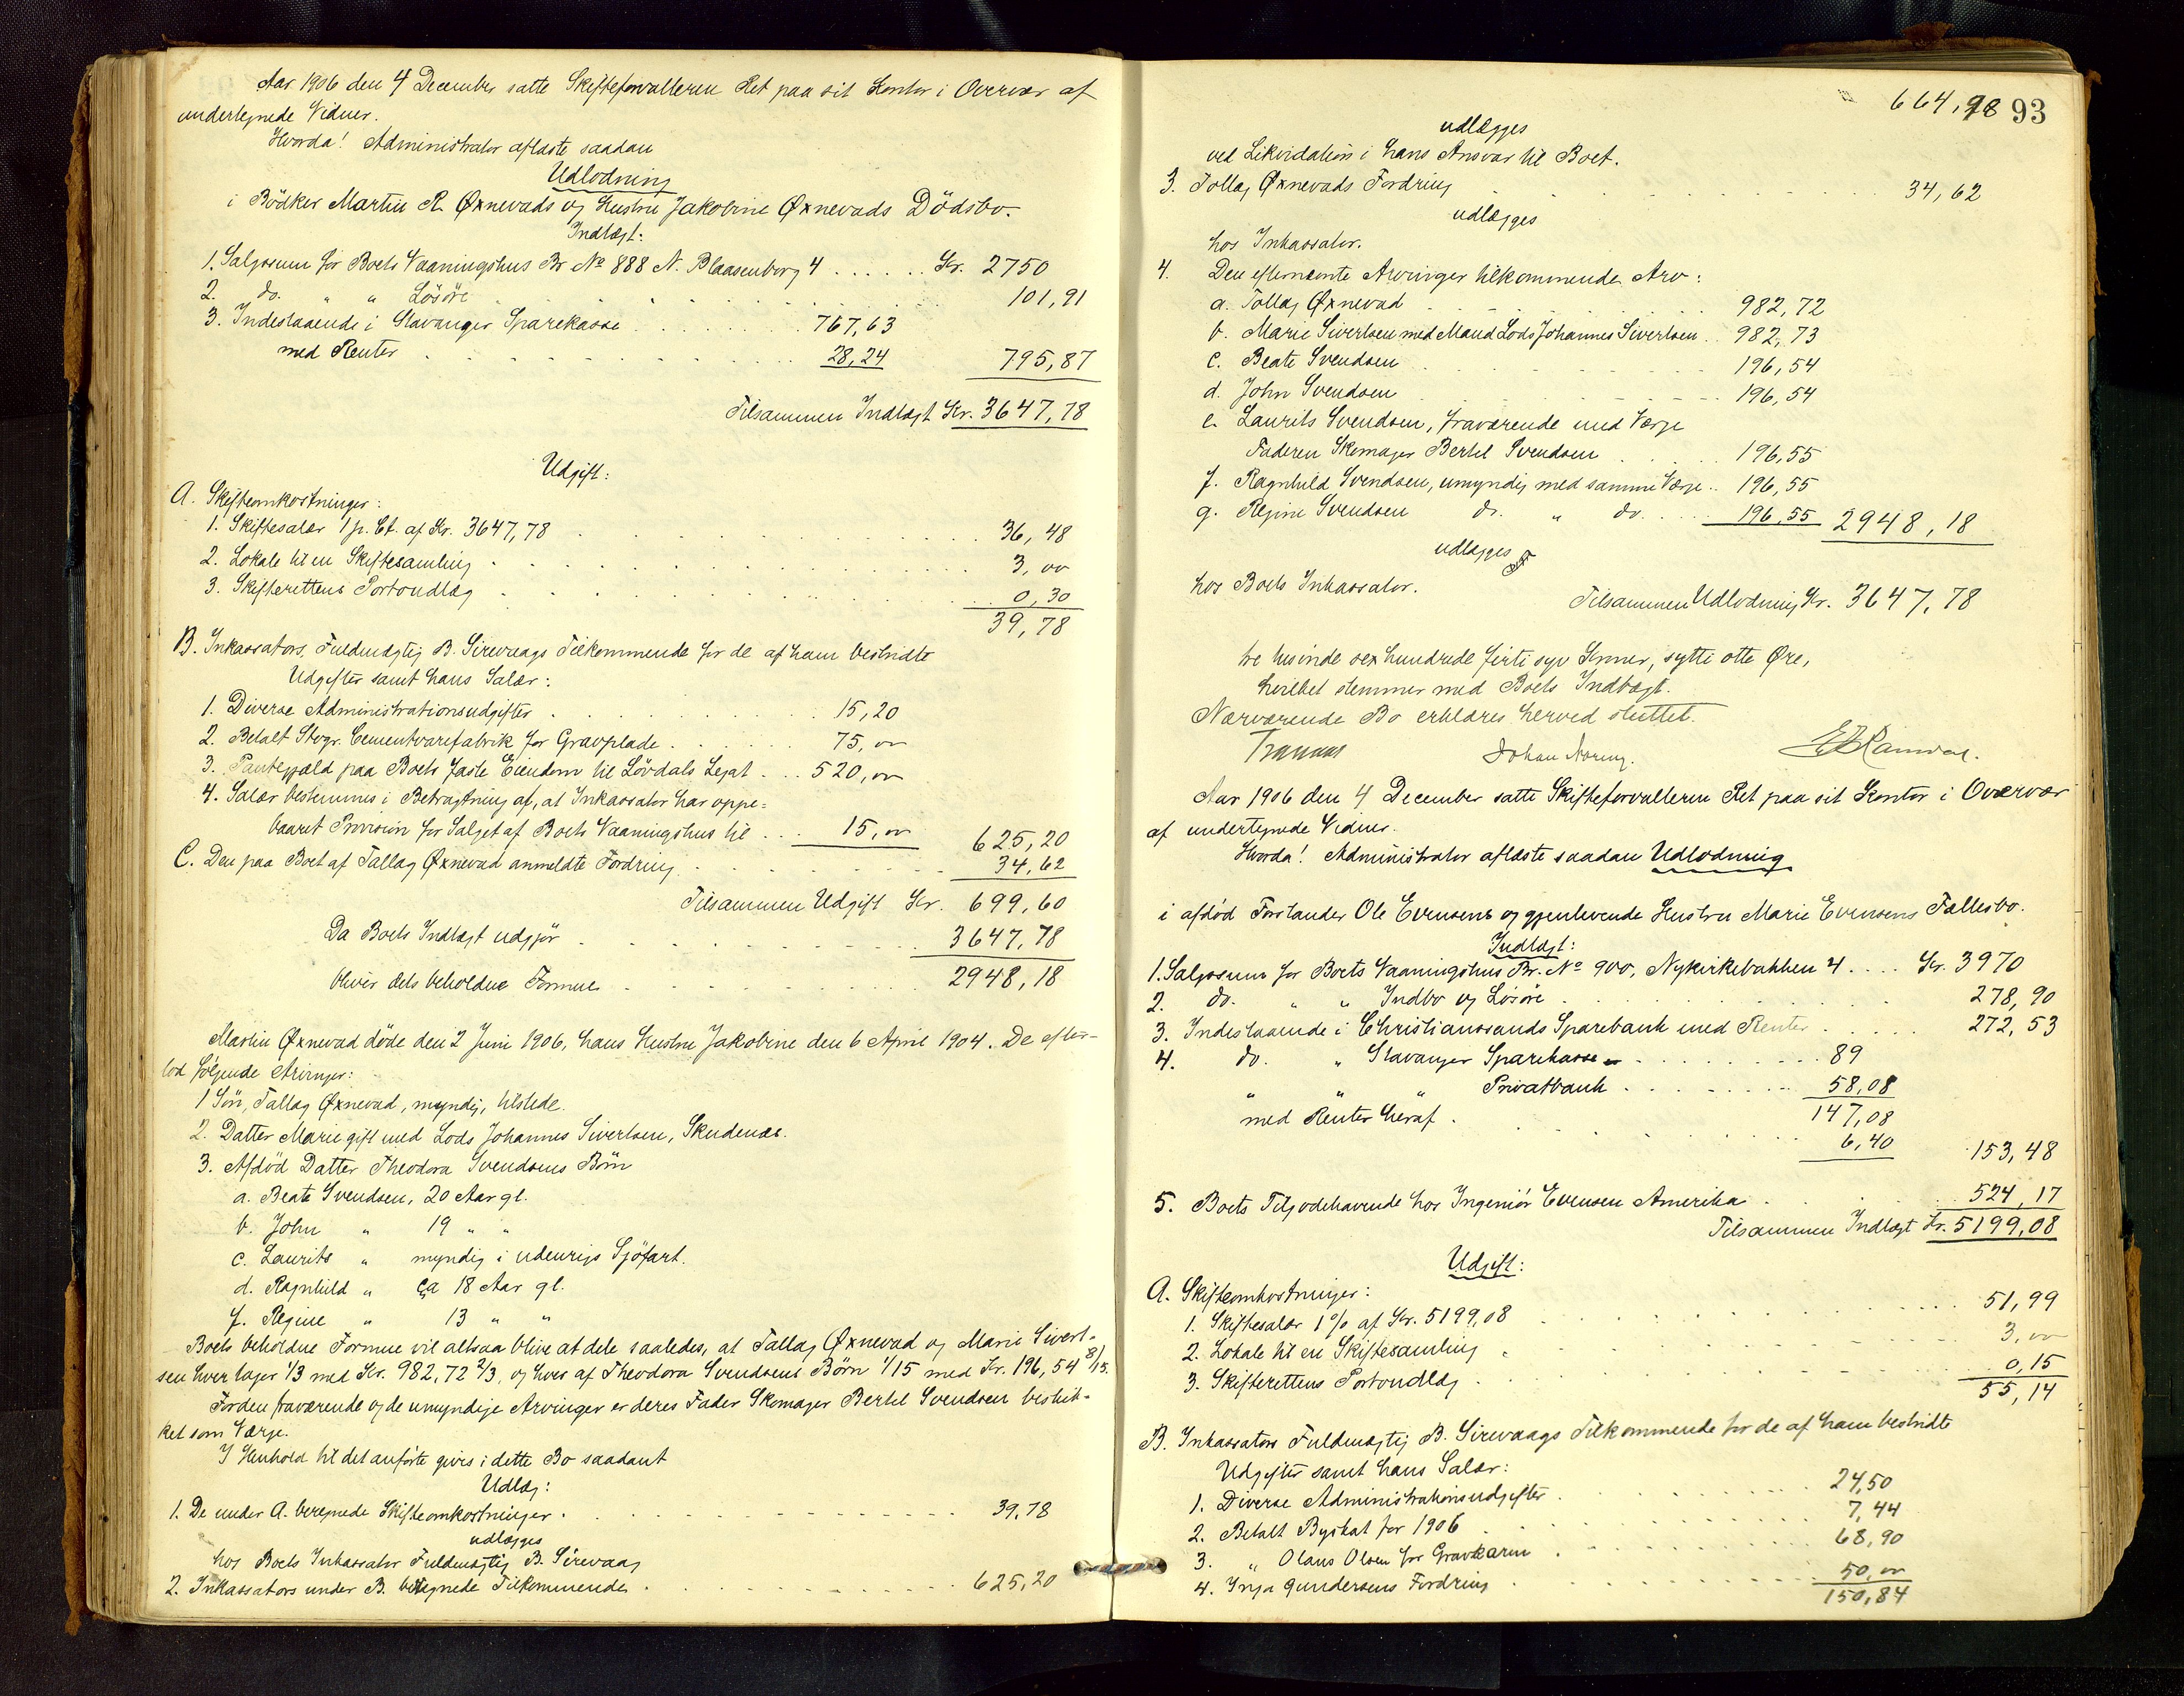 Aar 1906 den 4 December satte Skifteforvalteren Ret paa sit Kontor i Overvær af
undertegnede Vidner.
Hvorda! Administrator aflæste saadan
Udlodning
i Bödker Martin R. Øxnevads og Hustru Jakobine Øxnevads Dödsbo.
Indtægt:
1. Salgssum for Boets Vaaningshus Br. No 888 N. Blaasenborg 4 . . . . . Kr. 2750
2. do. " " Lösöre . . . . . 101,91
3. Indestaaende i Stavanger Sparekasse . . . . . 767,63
med Renter . . . . . 28,24 795,87
Tilsammen Indtægt Kr. 3647,78
Udgift:
A. Skifteomkostninger:
1. Skiftesalær 1 p. Ct. af Kr. 3647,78 . . . . . 36,48
2. Lokale til en Skiftesamling . . . . . 3,00
3. Skifterettens Portoudlæg . . . . . 0,30
39,78
B. Inkassators, Fuldmægtig B. Sirevaags Tilkommende for de af ham bestridte
Udgifter samt hans Salær:
1. Diverse Administrationsudgifter . . . . . 15,20
2. Betalt Stvgr. Cementvarefabrik for Gravplade . . . . . 75,00
3. Pantegjæld paa Boets faste Eiendom til Lövdals Legat . . . 520,00
4. Salær bestemmes i Betragtning af, at Inkassator har oppe=
baaret Provision for Salget af Boets Vaaningshus til . . . 15,00 625,20
C. Den paa Boet af Tallag Øxnevad anmeldte Fordring . . . . . 34,62
Tilsammen Udgift Kr. 699,60
Da Boets Indtægt udgjör . . . . . 3647,78
bliver dets beholdne Formue . . . . . 2948,18
Martin Øxnevad döde den 2 Juni 1906, hans Hustru Jakobine den 6 April 1904. De efter-
lod fölgende Arvinger:
1 Sön, Tallag Øxnevad, myndig, tilstede.
2. Datter Marie gift med Lods Johannes Sivertsen, Skudenæs.
3. Afdöd Datter Theodora Svendsens Börn
a. Beate Svendsen, 20 Aar gl.
b. John " 19 " "
c. Laurits " myndig i udenrigs Sjöfart.
d. Ragnhild " ca 18 Aar gl.
f. Regine " 13 " "
Boets beholdne Formue vil altsaa blive at dele saaledes, at Tallag Øxnevad og Marie Sivert-
sen hver tager 1/3 med Kr. 982,72 2/3, og hver af Theodora Svendsens Börn 1/15 med Kr. 196,54 8/15.
For den fraværende og de umyndige Arvinger er deres Fader Skomager Bertel Svendsen beskik-
ket som Værge.
I Henhold til det anförte gives i dette Bo saadant
Udlæg:
1. De under A. beregnede Skifteomkostninger . . . . . 39,78
udlægges
hos Boets Inkassator Fuldmægtig B. Sirevaag
2. Inkassators under B. beregnede Tilkommende . . . . . 625,20
664,98 93
udlægges
ved Likvidation i hans Ansvar til Boet.
3. Tollag Øxnevads Fordring . . . . . 34,62
udlægges
hos Inkassator.
4. Den efternævnte Arvinger tilkommende Arv:
a. Tollag Øxnevad . . . . . 982,72
b. Marie Sivertsen med Mand Lods Johannes Sivertsen . . 982,73
c. Beate Svendsen . . . . . 196,54
d. John Svendsen . . . . . 196,54
e. Laurits Svendsen, fraværende med Værge
Faderen Skomager Bertel Svendsen . . . . . 196,55
f. Ragnhild Svendsen, umyndig med samme Værge . . 196,55
g. Regine Svendsen do. " do. . . . . 196,55 2948,18
udlægges
hos Boets Inkassator.
Tilsammen Udlodning Kr. 3647,78
tre tusinde sex hundrede førti syv Kroner, sytti otte Øre,
hvilket stemmer med Boets Indtægt.
Nærværende Bo erklæres herved sluttet.
Aar 1906 den 4 December satte Skifteforvalteren Ret paa sit Kontor i Overvær
af undertegnede Vidner.
Hvorda! Administrator aflæste saadan Udlodning
i afdöd Forstander Ole Evensens og gjenlevende Hustru Marie Evensens Fællesbo.
Indtægt:
1. Salgssum for Boets Vaaningshus Br. No 900, Nykirkebakken 4 . . . . Kr. 3970
2. do. " " Indbo og Lösöre . . . . . 278,90
3. Indestaaende i Christianssands Sparebank med Renter . . . . . 272,53
4. do. " Stavanger Sparekasse . . . . . 89
" " " Privatbank . . . . . 58,08
147,08
med Renter heraf . . . . . 6,40 153,48
5. Boets Tilgodehavende hos Ingeniör Evensen Amerika . . . . . 524,17
Tilsammen Indtægt Kr. 5199,08
Udgift:
A. Skifteomkostninger:
1. Skiftesalær 1% af Kr. 5199,08 . . . . . 51,99
2. Lokale til en Skiftesamling . . . . . 3,00
3. Skifterettens Portoudlæg . . . . . 0,15
55,14
B. Inkassators Fuldmægtig B. Sirevaags Tilkommende for de af ham bestridte
Udgifter samt hans Salær:
1. Diverse Administrationsudgifter . . . . . 24,50
2. Betalt Byskat for 1906 . . . . . 7,44
3. " Olaus Olsen for Gravkarm . . . . . 68,90
4. Inga Gundersens Fordring . . . . . 50,00
150,84